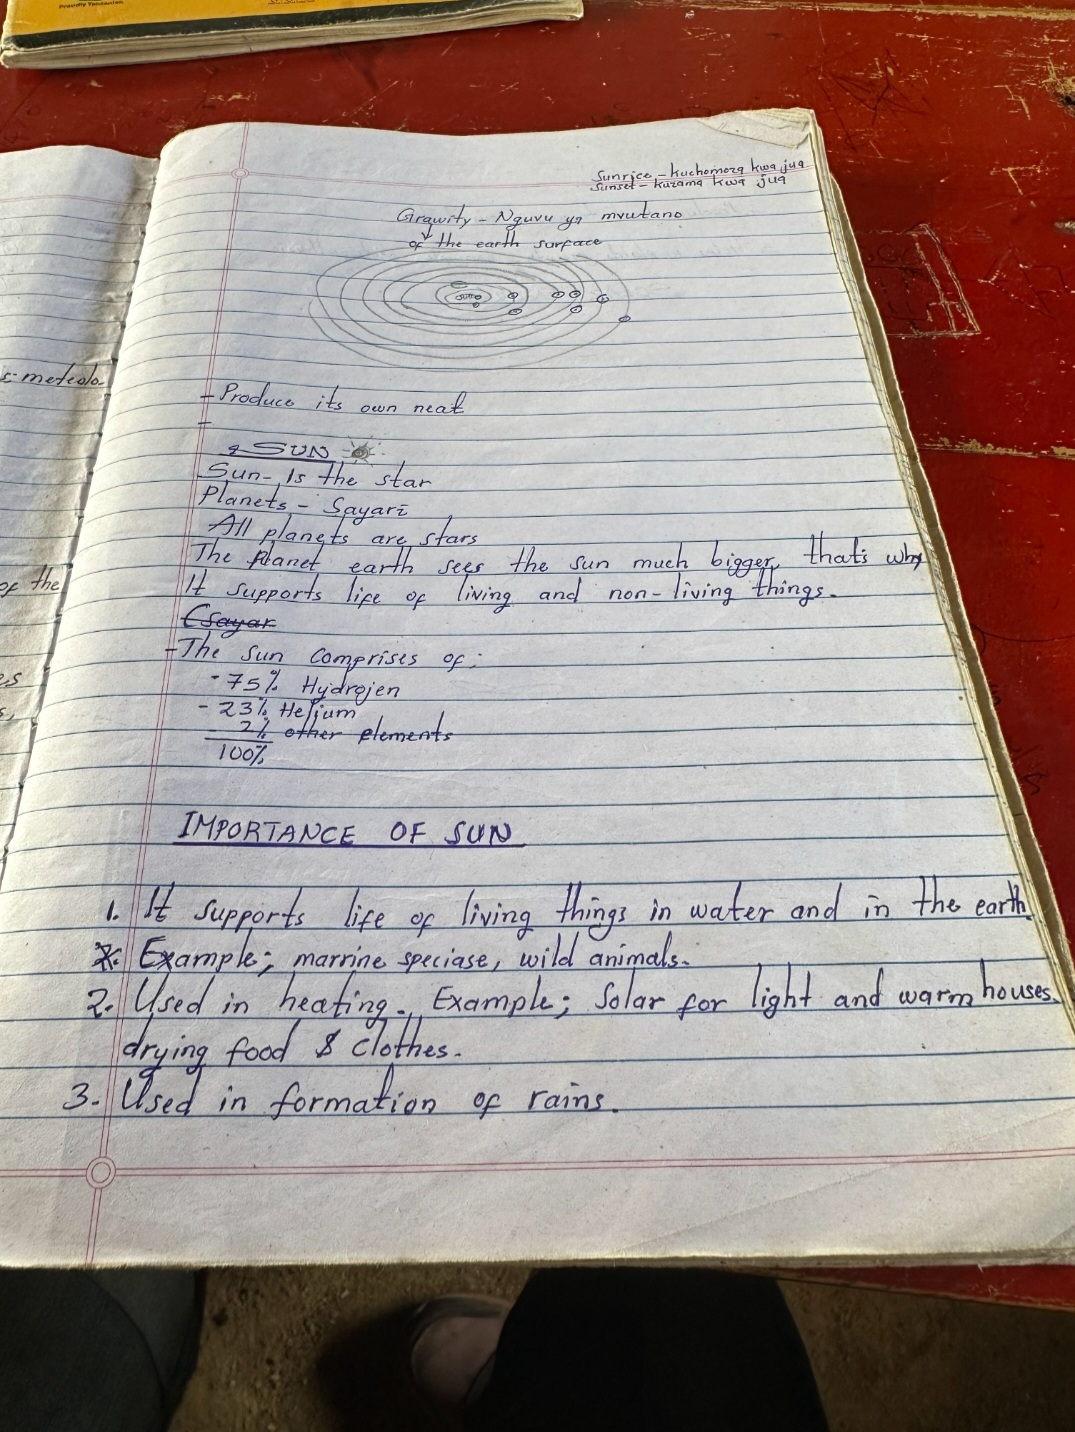 Proudly Tanzanian
Sunrice - kuchomoza kwa jua
Sunset - kuzama kwa jua
Grawity - Nguvu ya mvutano
of the earth surface
sun
- Produce its own heat
-
SUN
Sun - Is the star
Planets - Sayari
All planets are stars
The planet earth sees the sun much bigger, that's why
It supports life of living and non-living things.
(sayar
- The Sun comprises of:
- 75% Hydrojen
- 23% Helium
2% other elements
100%
IMPORTANCE OF SUN
1. It supports life of living things in water and in the earth.
Example; marrine speciase, wild animals.
2. Used in heating. Example; Solar for light and warm houses.
drying food & clothes.
3. Used in formation of rains.
meteolo
of the